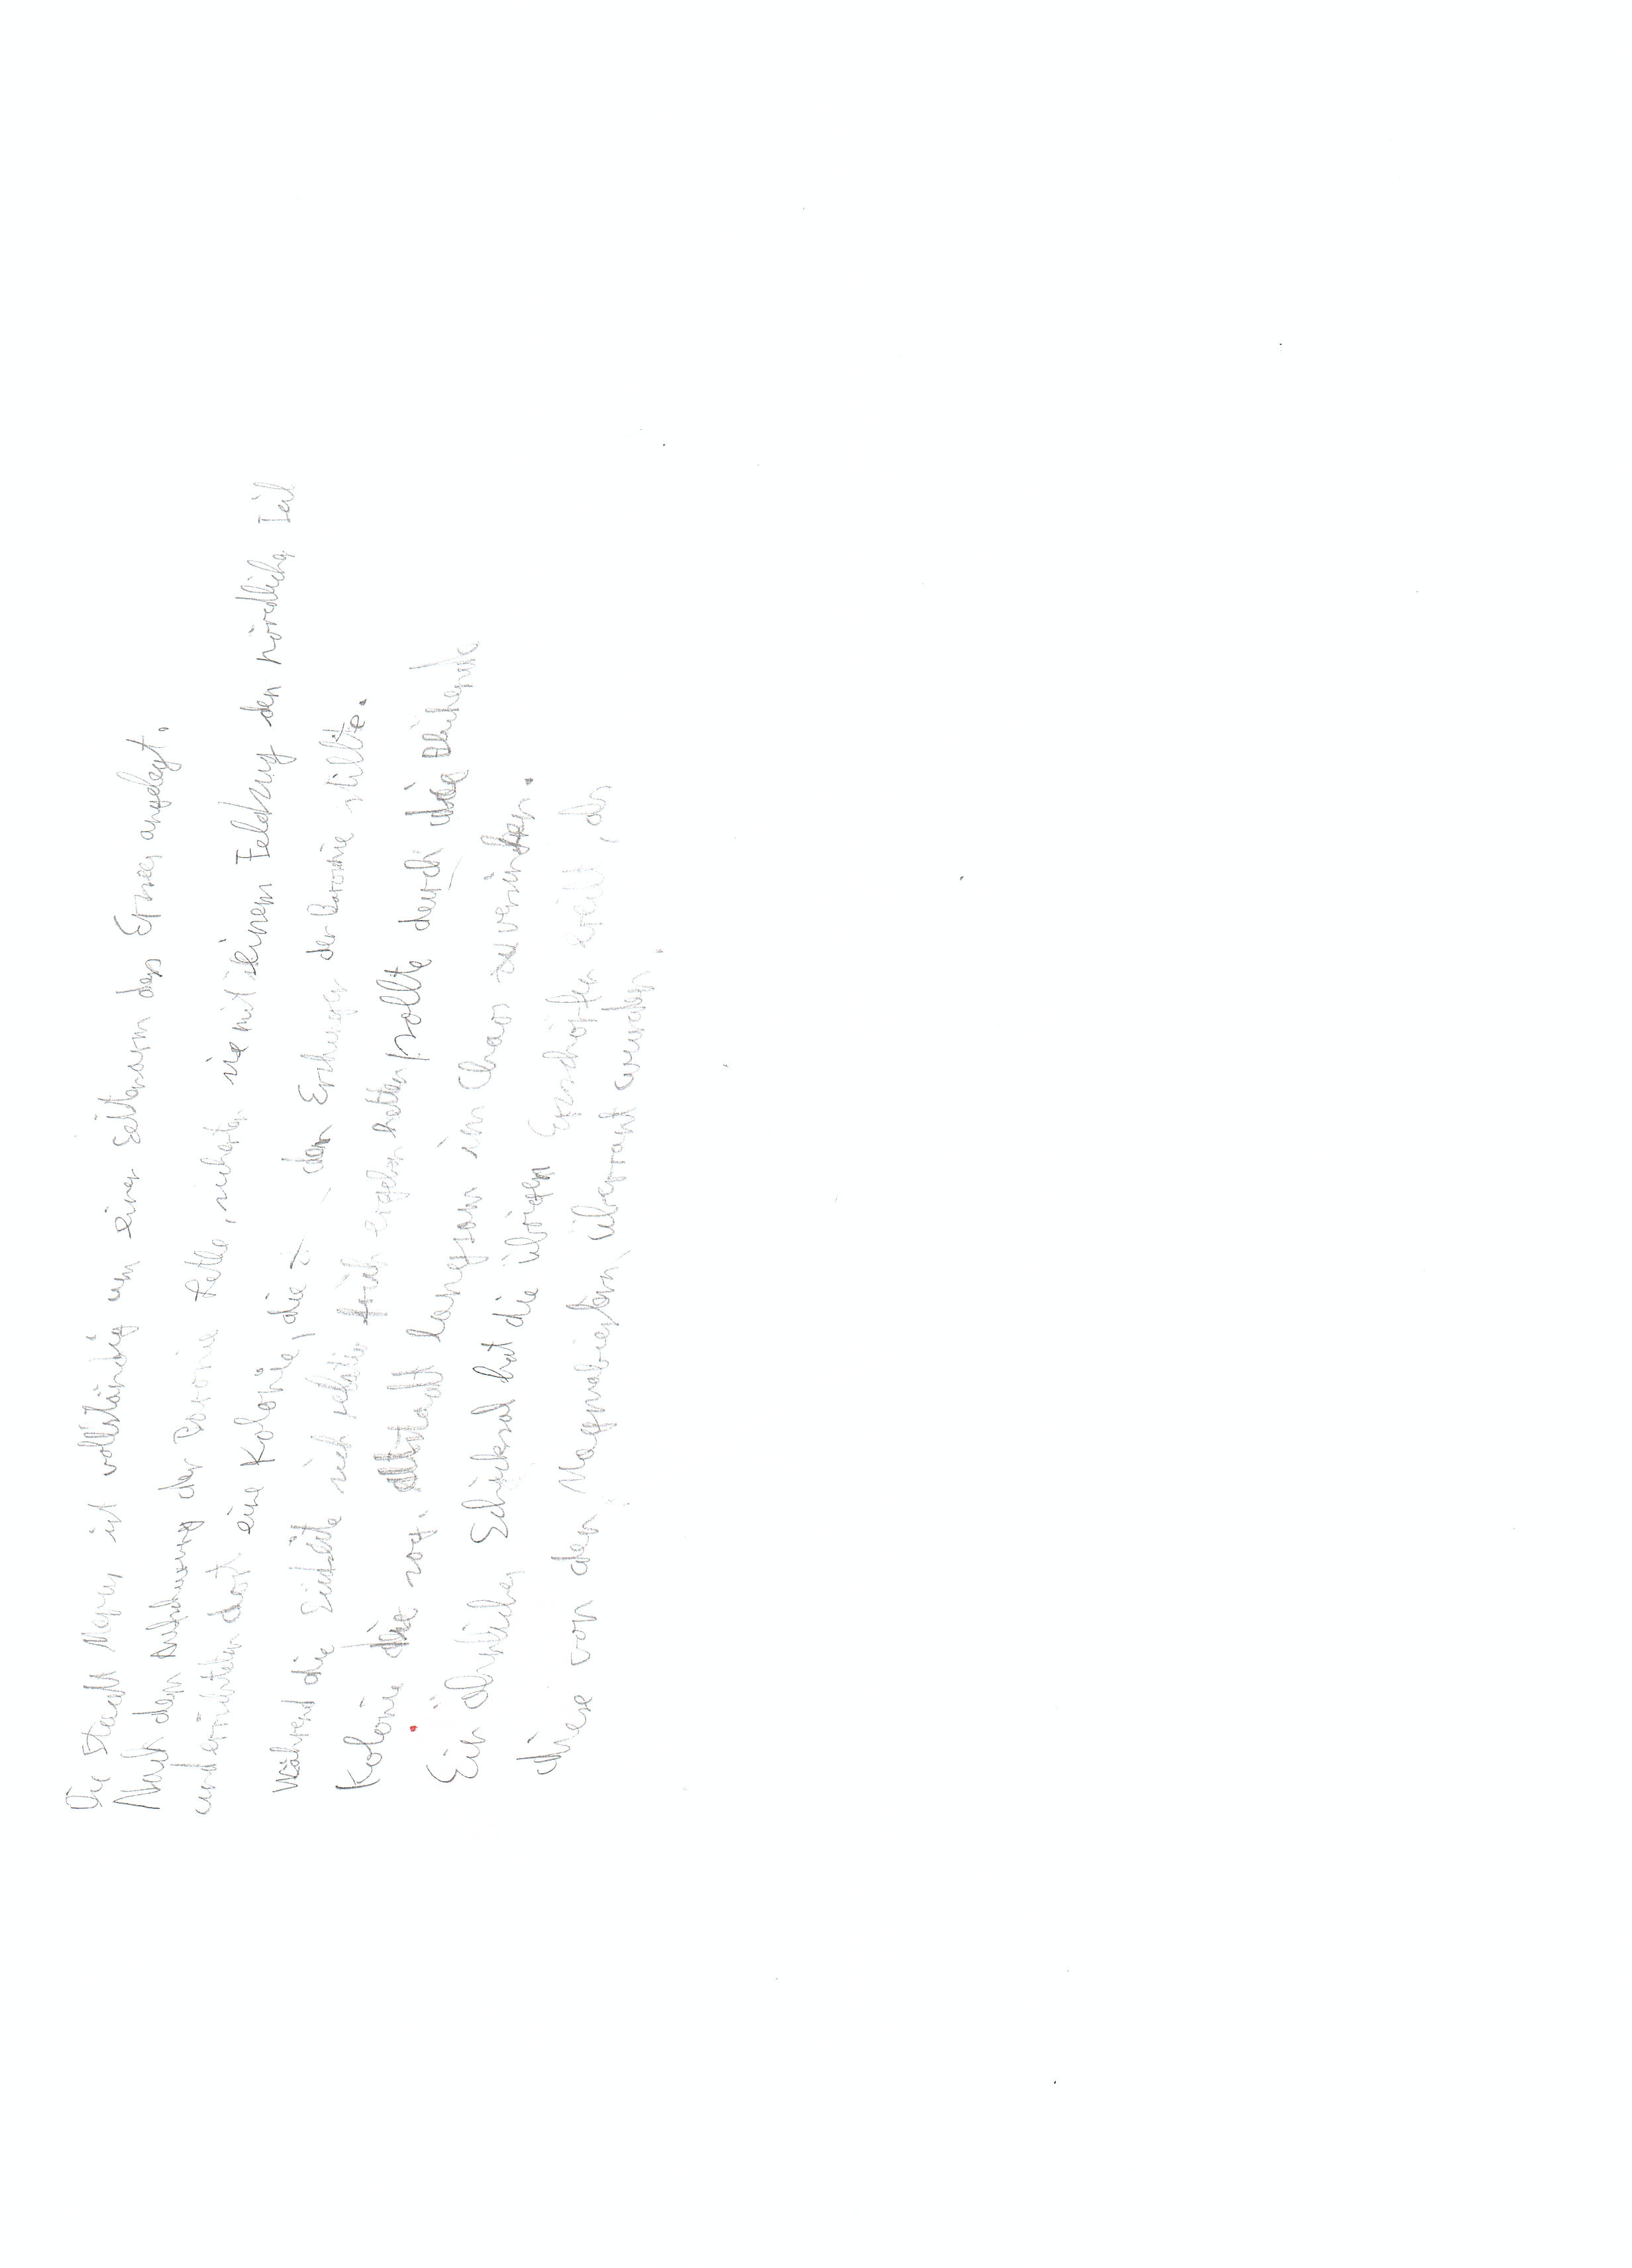 Die Stadt ist vollständig um einen Seitenarm des Erzsees angelegt.
Nach dem Aufschwung der Baronie, sicherten sie mit einem Feldzug den nördlichen Teil
und errichteten dort eine Kolonie, die den Erzhunger der Baronie stillte.
Während die Südseite sich relativ früh ergeben hatten sollte durch die blühende
Kolonie die sog. Altstadt langsam im Chaos zu versinken.
Ein ähnliches Schicksal hat die übrigen Erzschöpfer ereilt, als
diese von den Magmabiestern überrant wurden.